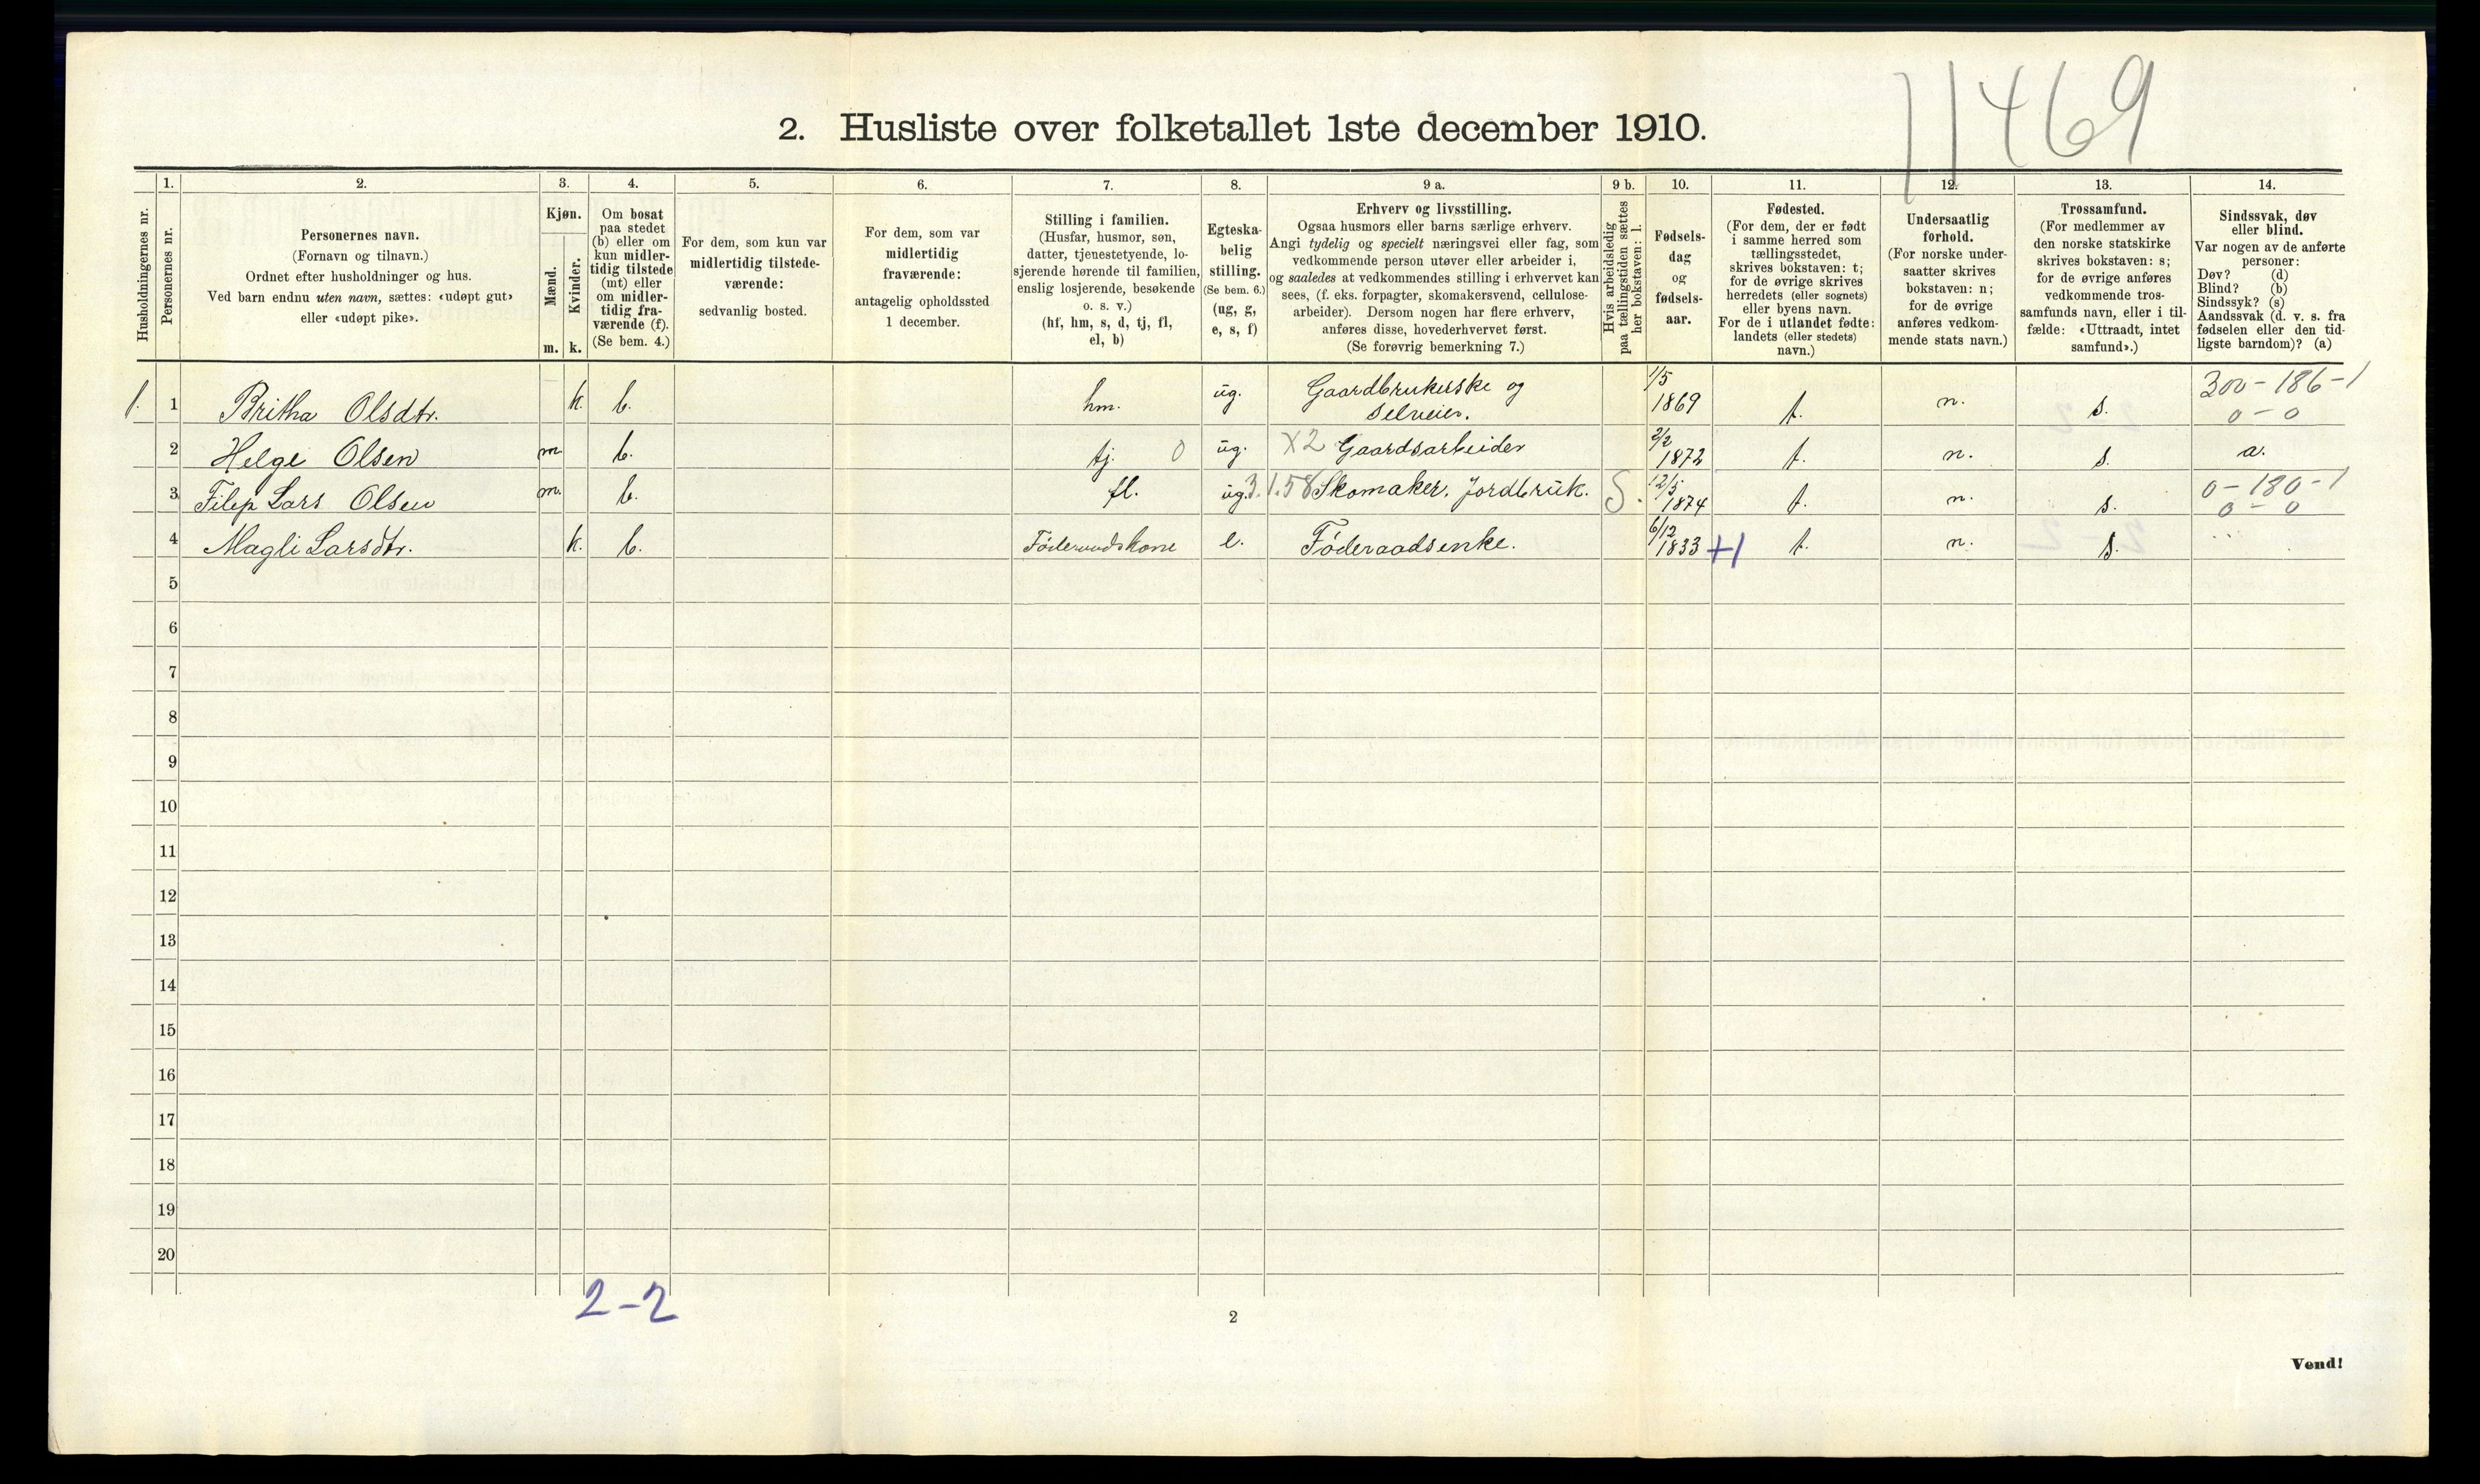 11469
2. Husliste over folketallet 1ste december 1910.
Husholdningernes nr.
1.
Personernes nr.
2.
Personernes navn.
(Fornavn og tilnavn.)
Ordnet efter husholdninger og hus.
Ved barn endnu uten navn, sættes: «udøpt gut»
eller «udøpt pike».
3.
Kjøn.
Mænd.
Kvinder.
m. k.
4.
Om bosat
paa stedet
(b) eller om
kun midler-
tidig tilstede
(mt) eller
om midler-
tidig fra-
værende (f).
(Se bem. 4.)
5.
For dem, som kun var
midlertidig tilstede-
værende:
sedvanlig bosted.
6.
For dem, som var
midlertidig
fraværende:
antagelig opholdssted
1 december.
7.
Stilling i familien.
(Husfar, husmor, søn,
datter, tjenestetyende, lo-
sjerende hørende til familien,
enslig losjerende, besøkende
o. s. v.)
(hf, hm, s, d, tj, fl,
el, b)
8.
Egteska-
belig
stilling.
(Se bem. 6.)
(ug, g,
e, s, f)
9 a.
Erhverv og livsstilling.
Ogsaa husmors eller barns særlige erhverv.
Angi tydelig og specielt næringsvei eller fag, som
vedkommende person utøver eller arbeider i,
og saaledes at vedkommendes stilling i erhvervet kan
sees, (f. eks. forpagter, skomakersvend, cellulose-
arbeider). Dersom nogen har flere erhverv,
anføres disse, hovederhvervet først.
(Se forøvrig bemerkning 7.)
9 b.
Hvis arbeidsledig
paa tællingstiden sættes
her bokstaven: l.
10.
Fødsels-
dag
og
fødsels-
aar.
11.
Fødested.
(For dem, der er født
i samme herred som
tællingsstedet,
skrives bokstaven: t;
for de øvrige skrives
herredets (eller sognets)
eller byens navn.
For de i utlandet fødte:
landets (eller stedets)
navn.)
12.
Undersaatlig
forhold.
(For norske under-
saatter skrives
bokstaven: n;
for de øvrige
anføres vedkom-
mende stats navn.)
13.
Trossamfund.
(For medlemmer av
den norske statskirke
skrives bokstaven: s;
for de øvrige anføres
vedkommende tros-
samfunds navn, eller i til-
fælde: «Uttraadt, intet
samfund».)
14.
Sindssvak, døv
eller blind.
Var nogen av de anførte
personer:
Døv? (d)
Blind? (b)
Sindssyk? (s)
Aandssvak (d. v. s. fra
fødselen eller den tid-
ligste barndom)? (a)
1. 1 Britha Olsdtr. k. b. hm. ug. Gaardbrukerske og Selveier. 1/5 1869 t. n. s. 300-186-1 0-0
2 Helge Olsen m b. tj. 0 ug. X2 Gaardsarbeider 2/2 1872 t. n. s. a.
3 Filip Lars Olsen m. b. fl. ug. 3.1.58 Skomaker. Jordbruk. S. 12/5 1874 t. n. s. 0-180-1 0-0
4 Magli Larsdtr. k. b. Föderaadskone e. Föderaadsenke. 6/12 1833 +1 t. n. s.
5
6
7
8
9
10
11
12
13
14
15
16
17
18
19
20
2-2
2
Vend!